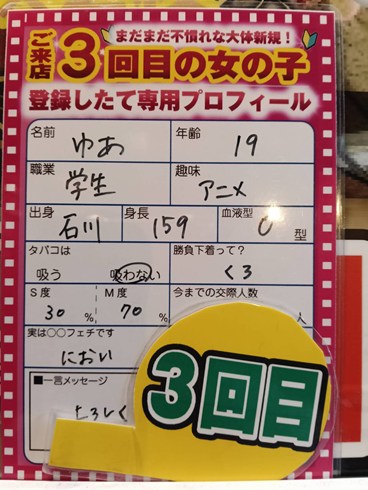 まだまだ不慣れな大体新規！
ご来店3回目の女の子
登録したて専用プロフィール
名前 ゆあ 年齢 19
職業 学生 趣味 アニメ
出身 石川 身長 159 血液型 O 型
タバコは 勝負下着って？
吸う 吸わない くろ
S度 M度 今までの交際人数
30% 70% 人
実は○○フェチです
におい
■一言メッセージ
3回目